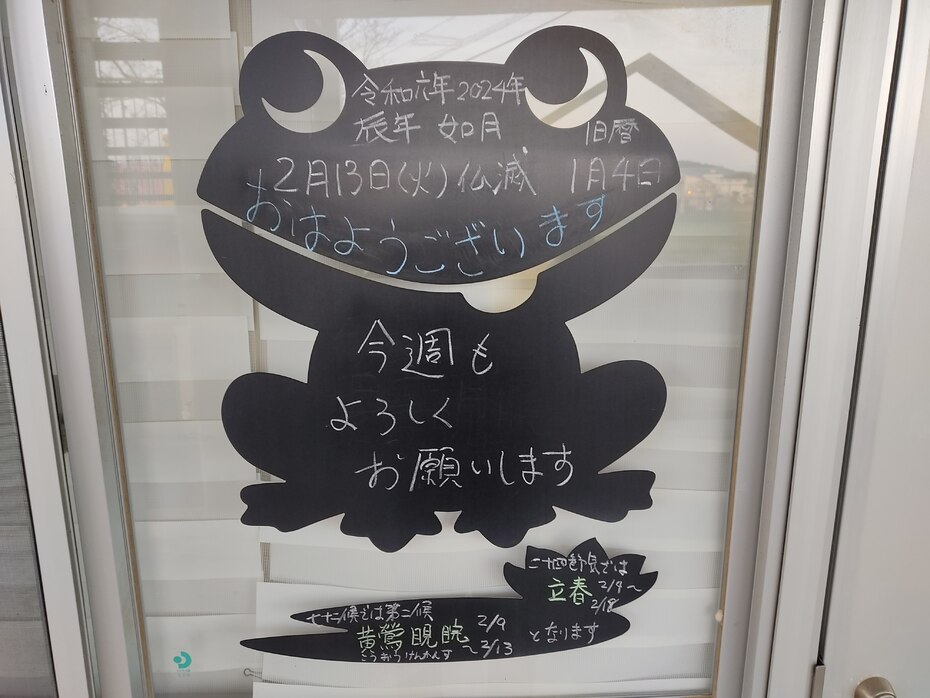 令和六年 2024年
辰年 如月 旧暦
2月13日(火) 仏滅 1月4日
おはようございます
今週も
よろしく
お願いします
二十四節気では
立春 2/4~
2/18
となります
七十二候では第二候
黄鶯睍睆 2/9
こうおうけんかんす ~2/13